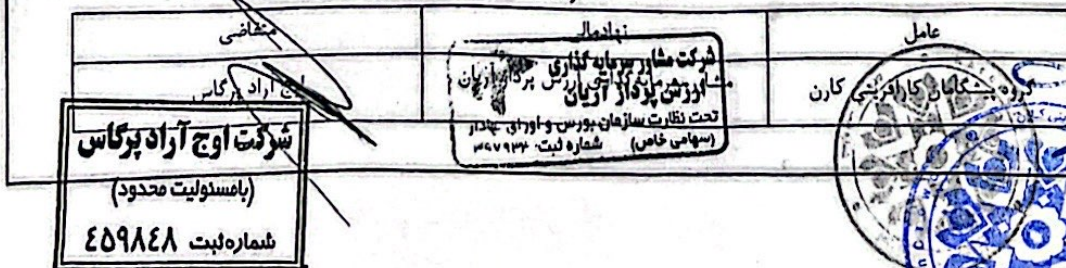 عامل
نهاد مالی
متقاضی
گروه پیشگامان کارآفرینی کارن
مشاور سرمایه‌گذاری ارزش پرداز آریان
اوج آراد پرگاس
شرکت مشاور سرمایه گذاری
ارزش پرداز آریان
تحت نظارت سازمان بورس و اوراق بهادار
(سهامی خاص) شماره ثبت: ۳۶۷۹۳۲
شرکت اوج آراد پرگاس
(بامسئولیت محدود)
شماره ثبت ٤٥٩٨٤٨